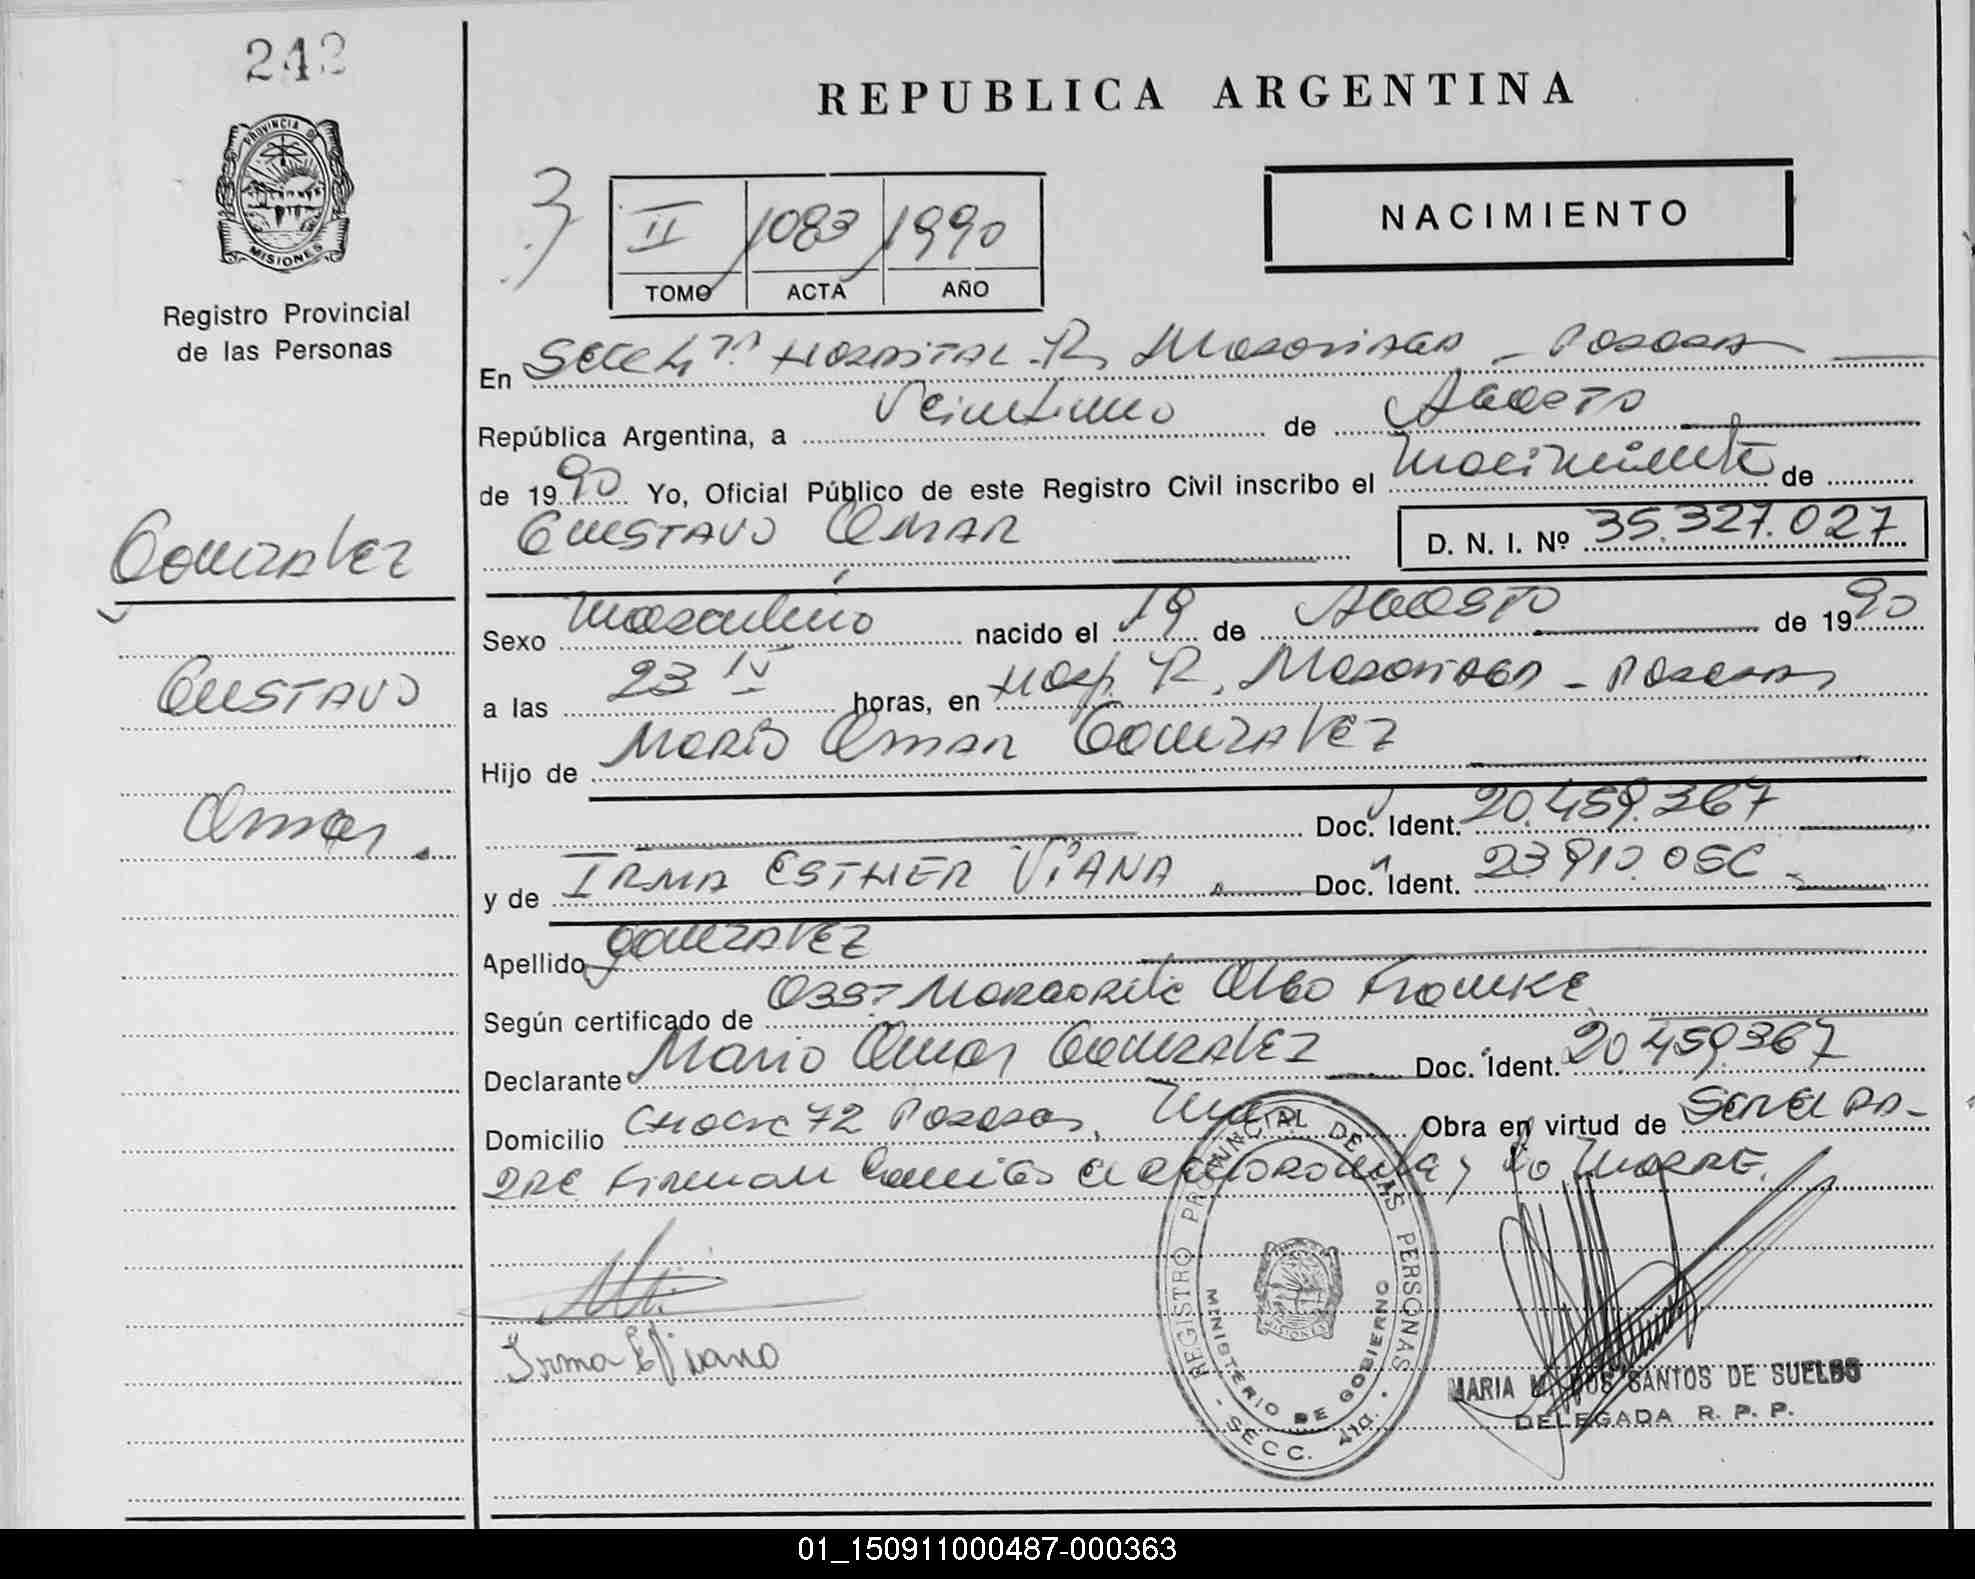 242
PROVINCIA DE
MISIONES
Registro Provincial
de las Personas
Gonzalez
Gustavo
Omar.
REPUBLICA ARGENTINA
II 1083 1990
TOMO ACTA AÑO
NACIMIENTO
En Secc 4ta Hospital R. Madariaga - Posadas
República Argentina, a Veintiuno de Agosto
de 1990 Yo, Oficial Público de este Registro Civil inscribo el Nacimiento de
Gustavo Omar D. N. I. Nº 35.327.027
Sexo Masculino nacido el 19 de Agosto de 1990
a las 23 15 horas, en Hosp. R. Madariaga - Posadas
Hijo de Mario Omar Gonzalez
Doc. Ident. 20.459.367
y de Irma Esther Viana Doc. Ident.
Apellido Gonzalez
Según certificado de Obst Margarita Olga
Declarante Mario Omar Gonzalez Doc. Ident. 20.459.367
Domicilio 72 Posadas, Mnes Obra en virtud de Ser el pa-
dre Firman y la Madre.
Irma E Viana
REGISTRO PROVINCIAL DE LAS PERSONAS
MINISTERIO DE GOBIERNO
MISIONES
- SECC. 4ta. -
MARIA M. DOS SANTOS DE SUELDO
DELEGADA R. P. P.
01_150911000487-000363